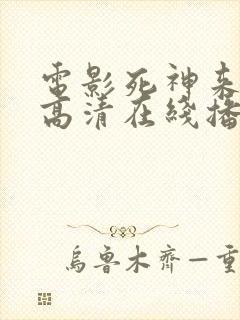 電影死神来
高清在线播
烏魯木齊—重